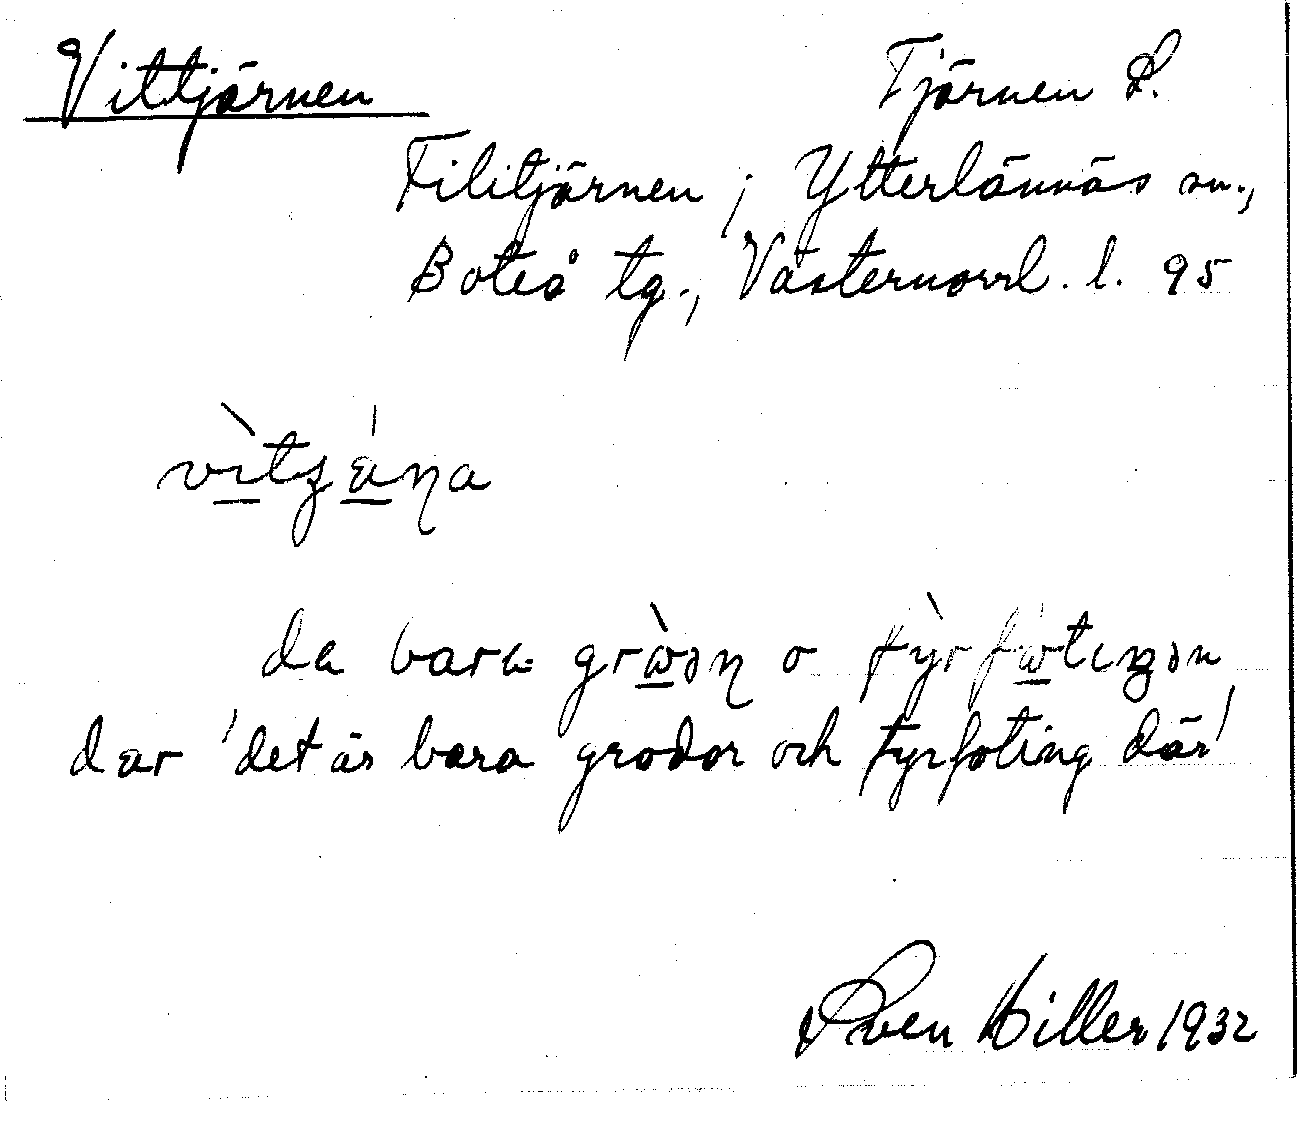 Vittjärnen
Tjärnen S.
Filitjärnen ; Ytterlännäs sn.,
Boteå tg., Västernorrl. l. 95
vìtʒáɳa
da bara grɷ̀əɳ o fỳrfɷtɩŋən
dar 'det är bara grodor och fyrfoting där'
Sven Hiller 1932